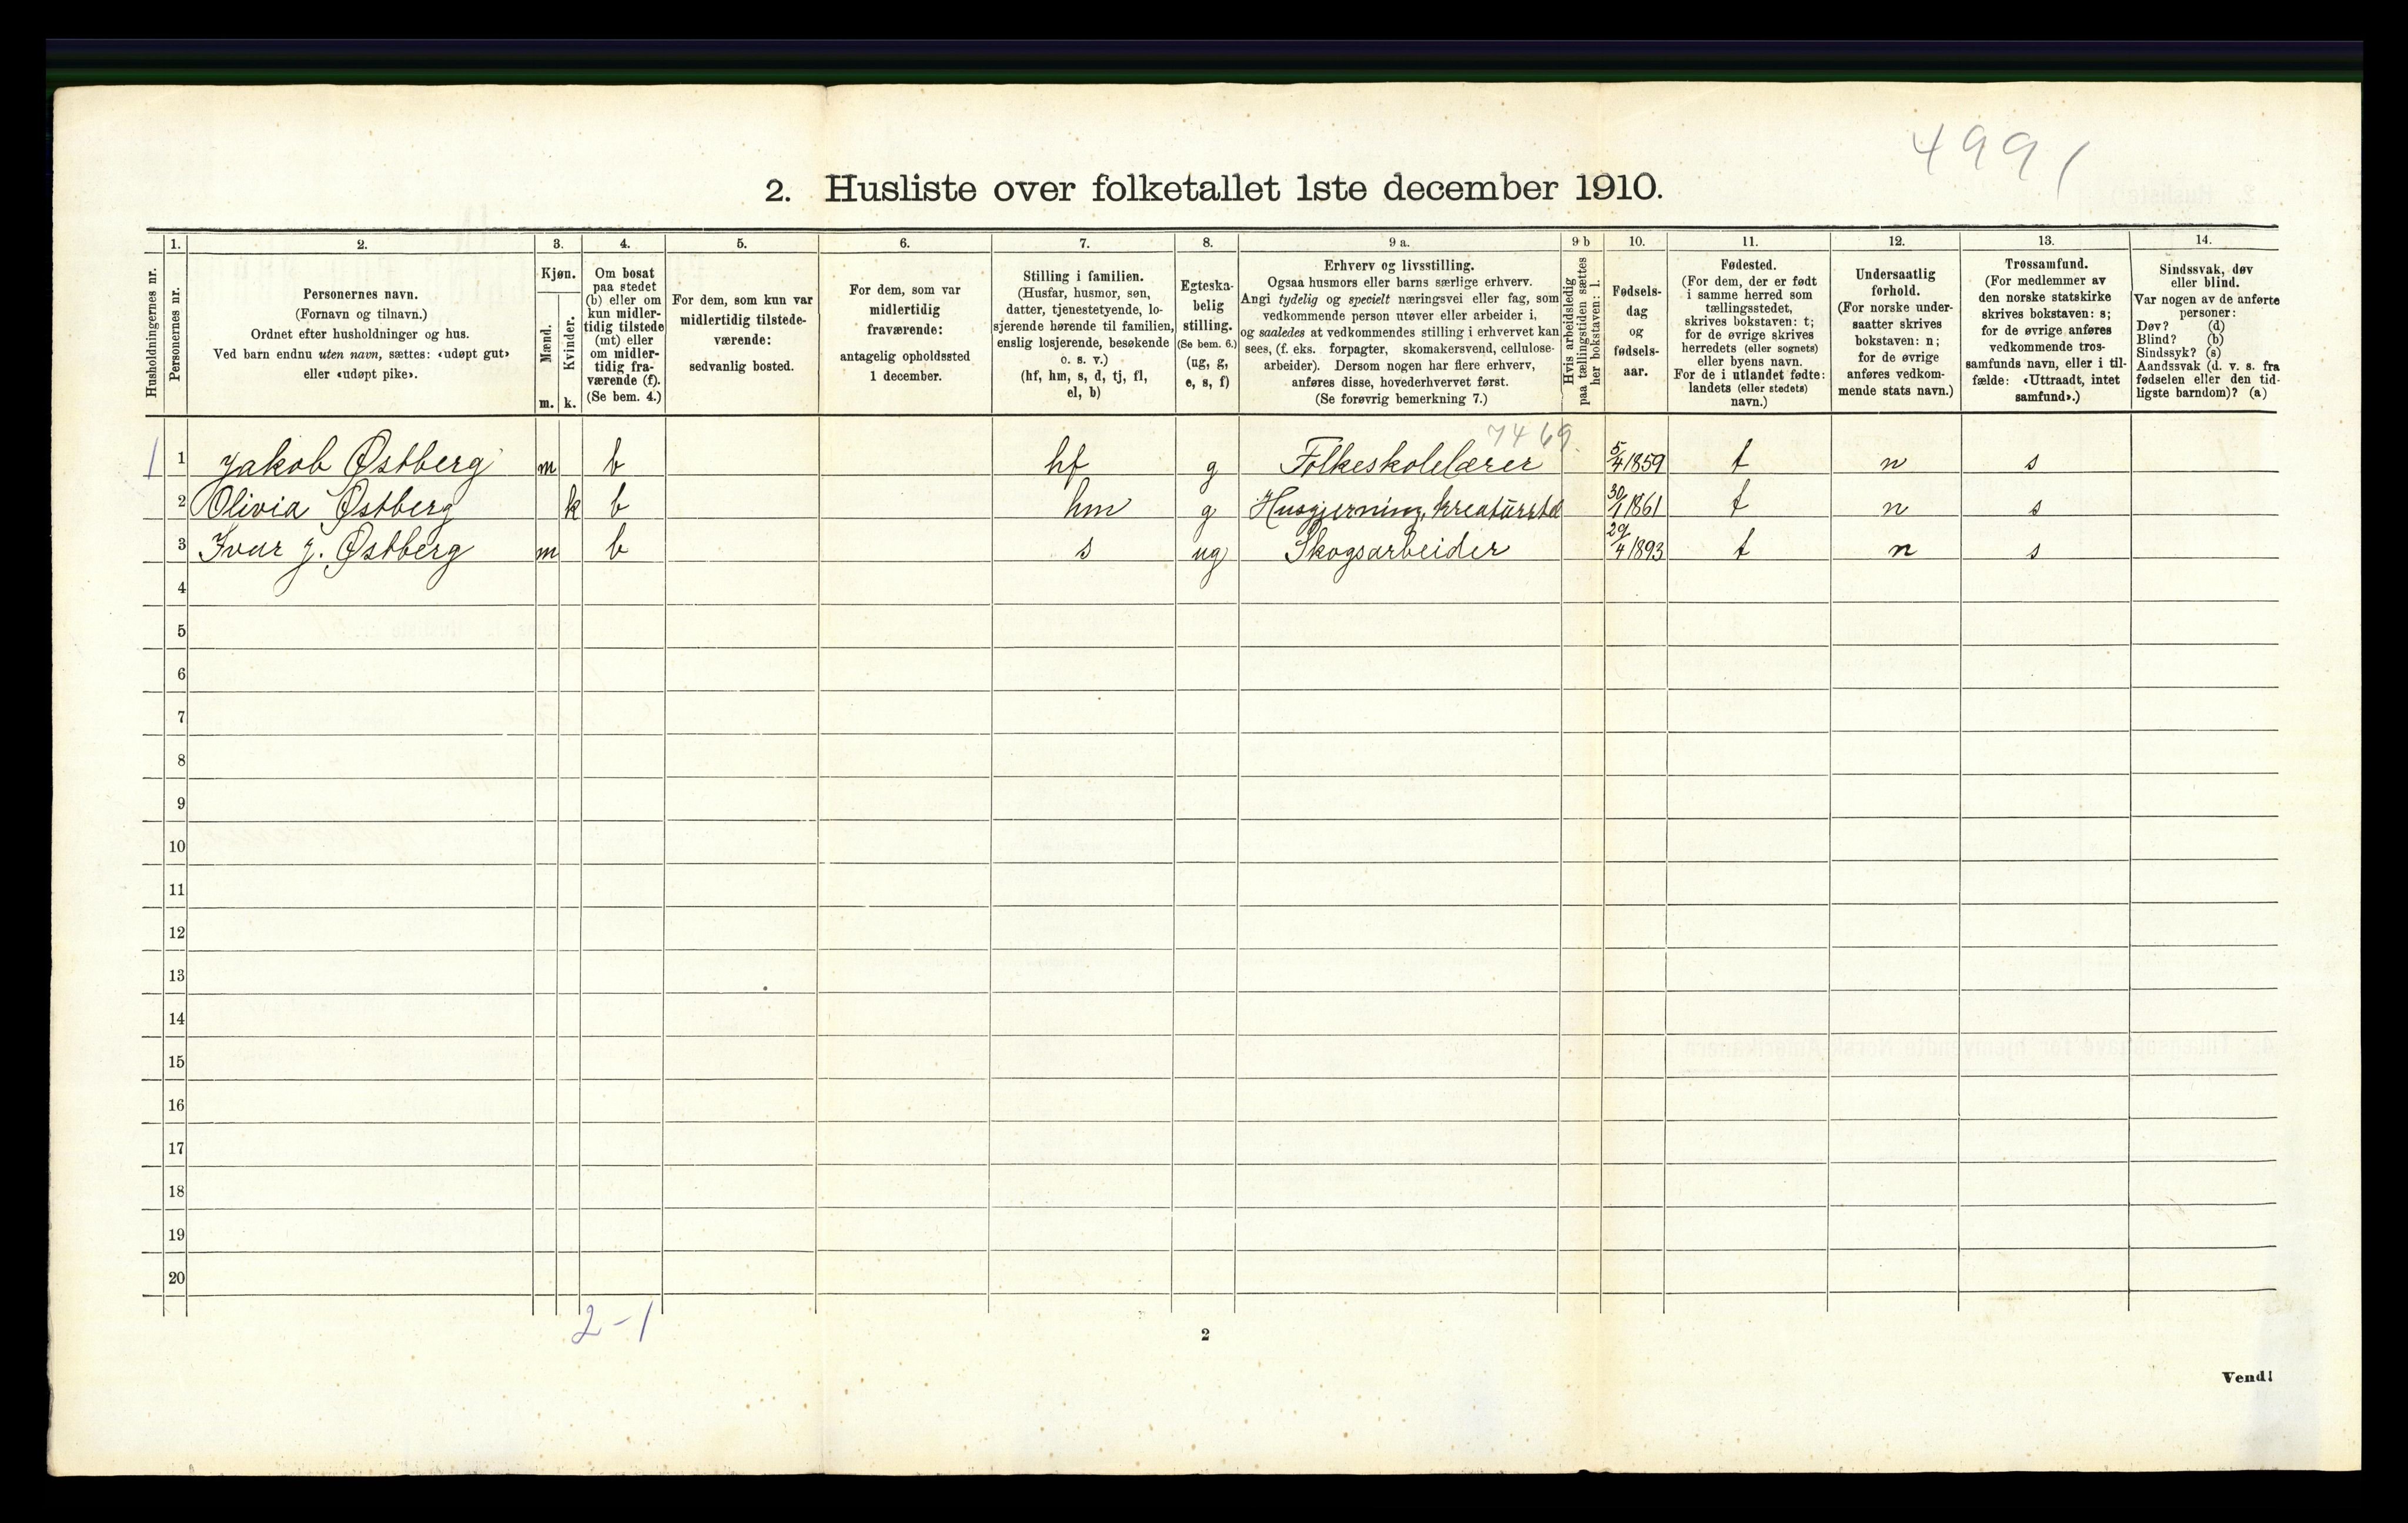 4991
2. Husliste over folketallet 1ste december 1910.
Husholdningernes nr.
1.
Personernes nr.
2.
Personernes navn.
(Fornavn og tilnavn.)
Ordnet efter husholdninger og hus.
Ved barn endnu uten navn, sættes: «udøpt gut»
eller «udøpt pike».
3.
Kjøn.
Mænd.
m.
Kvinder.
k.
4.
Om bosat
paa stedet
(b) eller om
kun midler-
tidig tilstede
(mt) eller
om midler-
tidig fra-
værende (f).
(Se bem. 4.)
5.
For dem, som kun var
midlertidig tilstede-
værende:
sedvanlig bosted.
6.
For dem, som var
midlertidig
fraværende:
antagelig opholdssted
1 december.
7.
Stilling i familien.
(Husfar, husmor, søn,
datter, tjenestetyende, lo-
sjerende hørende til familien,
enslig losjerende, besøkende
o. s. v.)
(hf, hm, s, d, tj, fl,
el, b)
8.
Egteska-
belig
stilling.
(Se bem. 6.)
(ug, g,
e, s, f)
9 a.
Erhverv og livsstilling.
Ogsaa husmors eller barns særlige erhverv.
Angi tydelig og specielt næringsvei eller fag, som
vedkommende person utøver eller arbeider i,
og saaledes at vedkommendes stilling i erhvervet kan
sees, (f. eks. forpagter, skomakersvend, cellulose-
arbeider). Dersom nogen har flere erhverv,
anføres disse, hovederhvervet først.
(Se forøvrig bemerkning 7.)
9 b
Hvis arbeidsledig
paa tællingstiden sættes
her bokstaven: l.
10.
Fødsels-
dag
og
fødsels-
aar.
11.
Fødested.
(For dem, der er født
i samme herred som
tællingsstedet,
skrives bokstaven: t;
for de øvrige skrives
herredets (eller sognets)
eller byens navn.
For de i utlandet fødte:
landets (eller stedets)
navn.)
12.
Undersaatlig
forhold.
(For norske under-
saatter skrives
bokstaven: n;
for de øvrige
anføres vedkom-
mende stats navn.)
13.
Trossamfund.
(For medlemmer av
den norske statskirke
skrives bokstaven: s;
for de øvrige anføres
vedkommende tros-
samfunds navn, eller i til-
fælde: «Uttraadt, intet
samfund».)
14.
Sindssvak, døv
eller blind.
Var nogen av de anførte
personer:
Døv? (d)
Blind? (b)
Sindssyk? (s)
Aandssvak (d. v. s. fra
fødselen eller den tid-
ligste barndom)? (a)
7469.
1 1 Jakob Østberg m b hf g Folkeskolelærer 5/4 1859 t n s
2 Olivia Østberg k b hm g Husgjerning, kreaturstel 30/1 1861 t n s
3 Ivar J. Østberg m b s ug Skogsarbeider 29/4 1893 t n s
4
5
6
7
8
9
10
11
12
13
14
15
16
17
18
19
20
2-1
2
Vend!